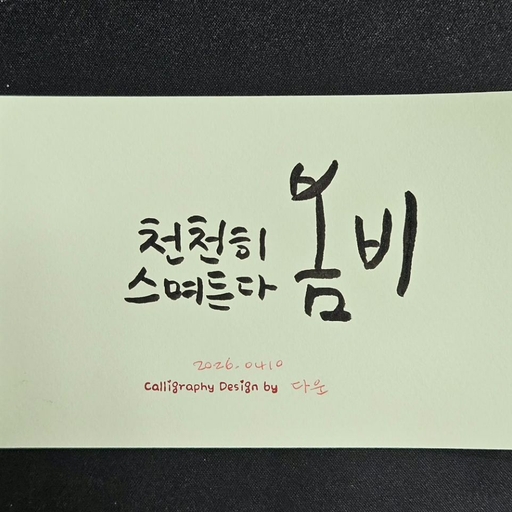 천천히
스며든다
봄비
2026.0410
Calligraphy Design by 다운